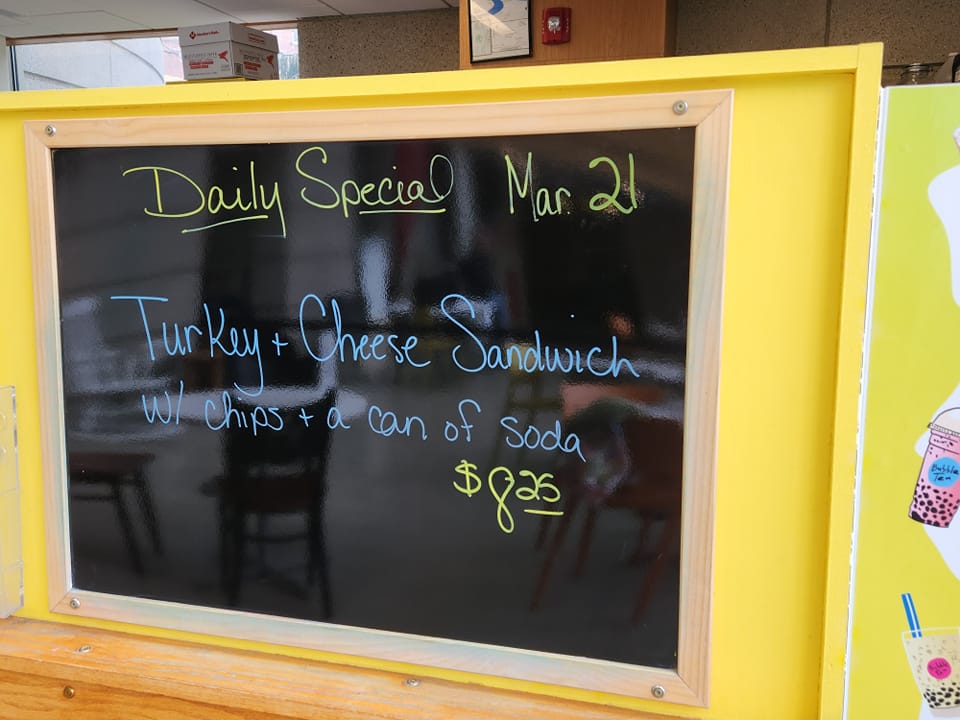 Daily Special Mar. 21
Turkey + Cheese Sandwich
w/ chips + a can of soda
$8 25
Member's Mark
Bubble
Tea